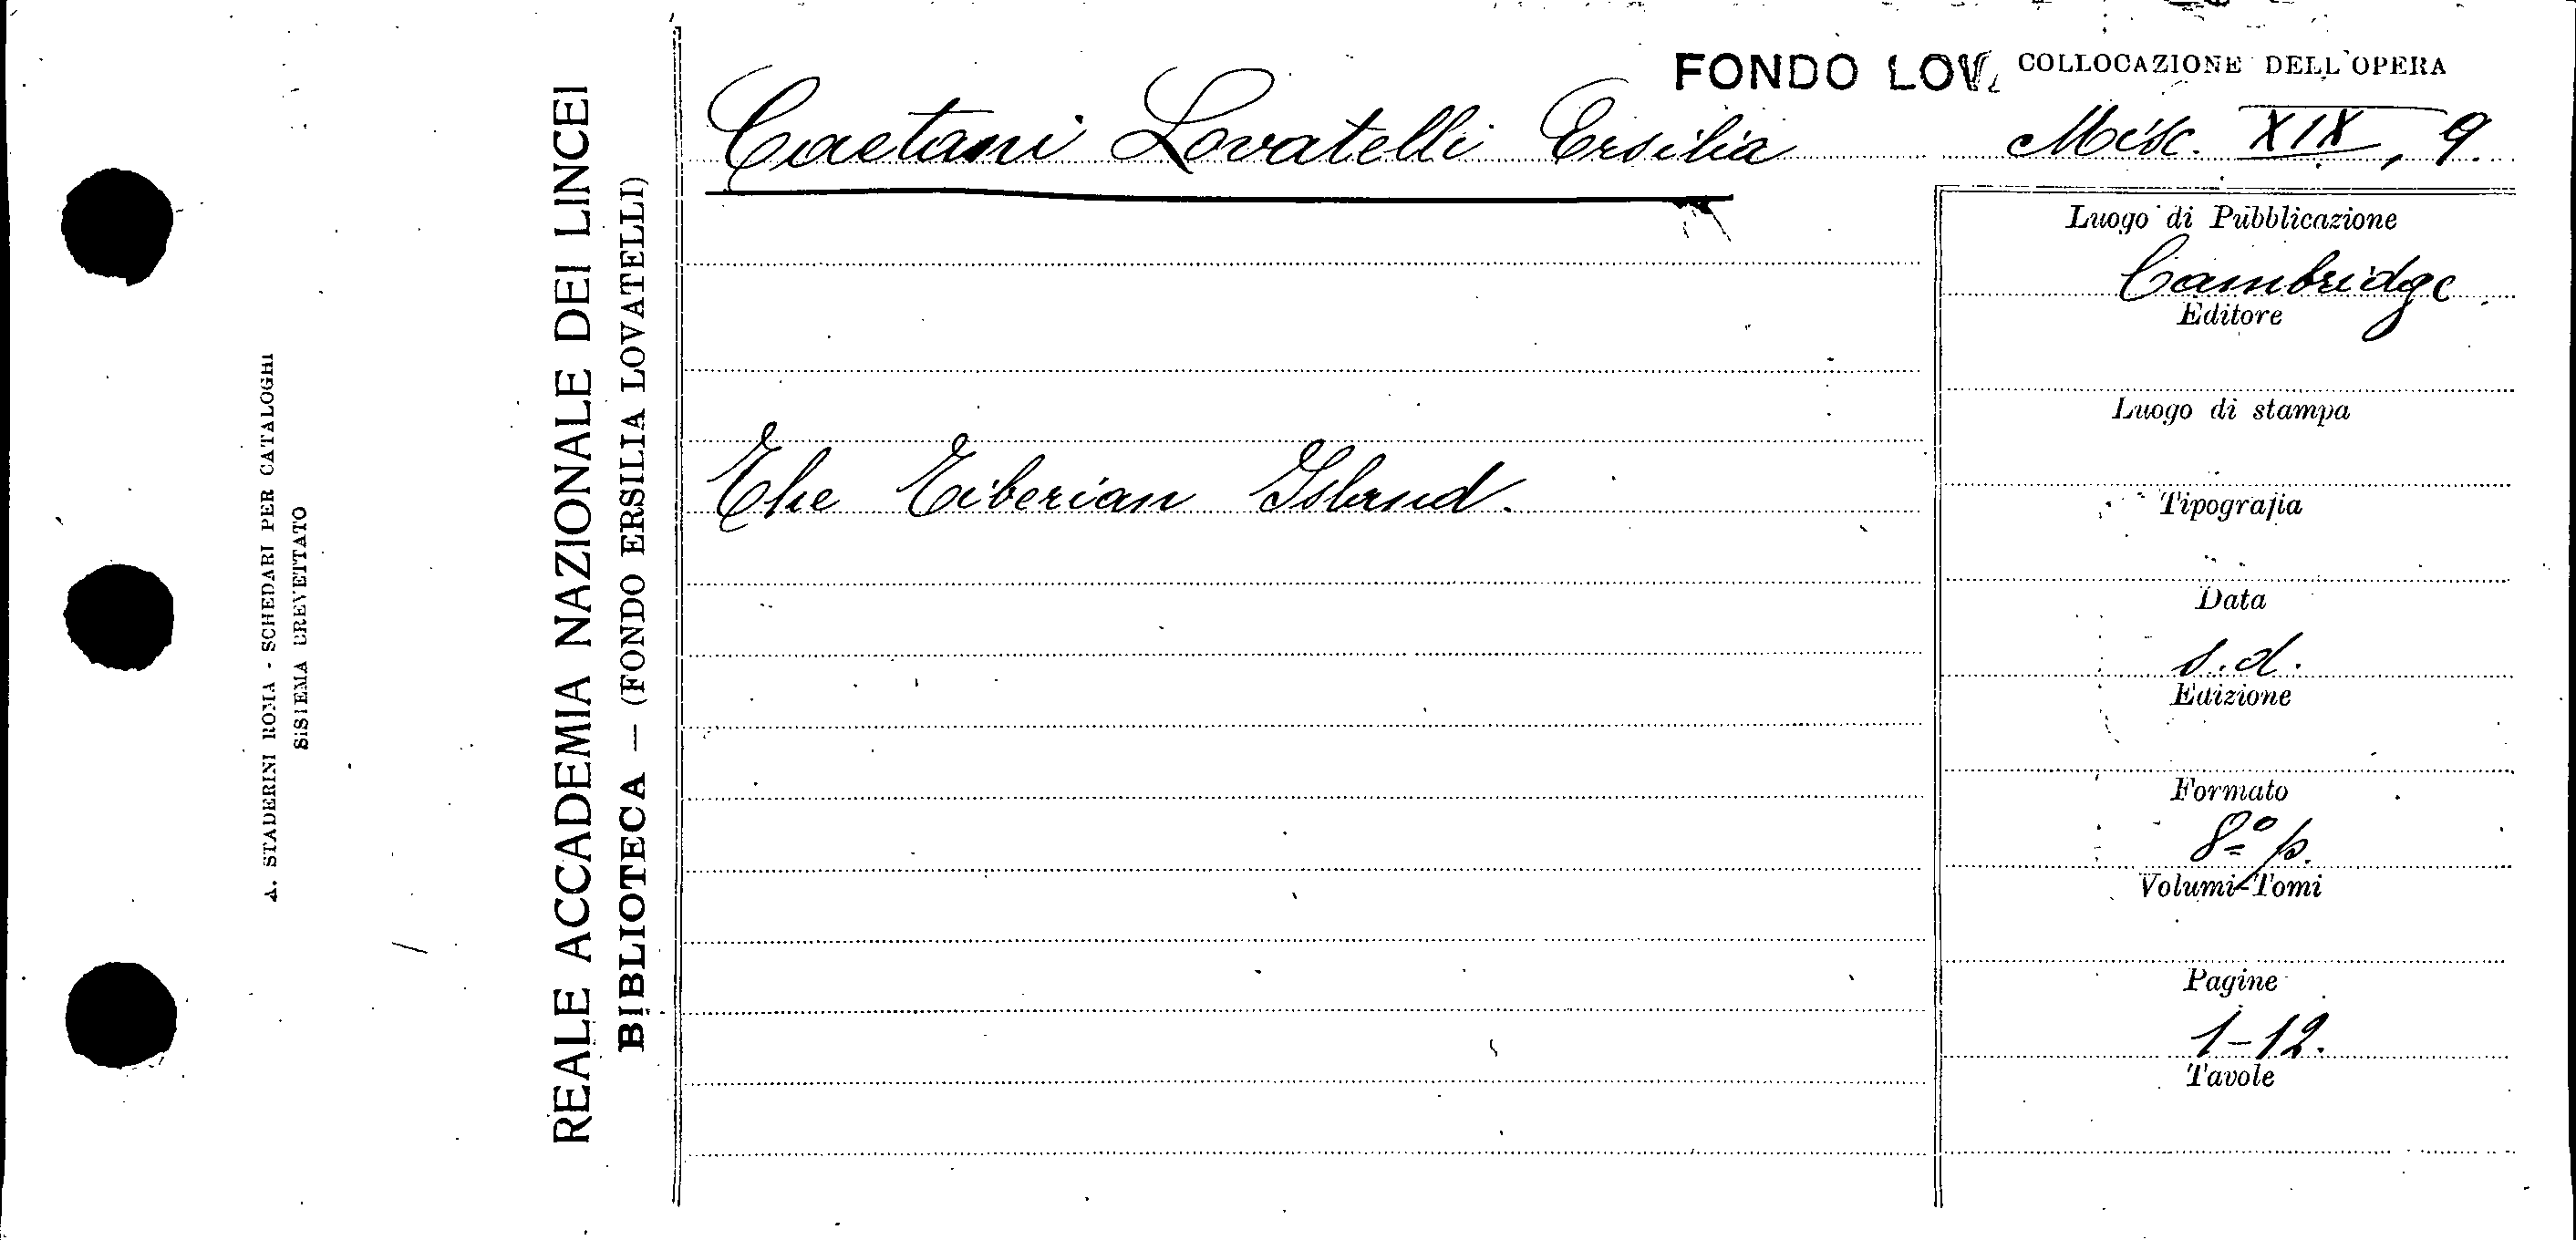 A. STADERINI ROMA - SCHEDARI PER CATALOGHI
SISTEMA BREVETTATO
REALE ACCADEMIA NAZIONALE DEI LINCEI
BIBLIOTECA — (FONDO ERSILIA LOVATELLI)
FONDO LOV. COLLOCAZIONE DELL'OPERA
Caetani Lovatelli Ersilia
Misc. XIX, 9.
The Tiberian Island.
Luogo di Pubblicazione
Cambridge
Editore
Luogo di stampa
Tipografia
Data
s.d.
Edizione
Formato
8º p.
Volumi-Tomi
Pagine
1-12.
Tavole